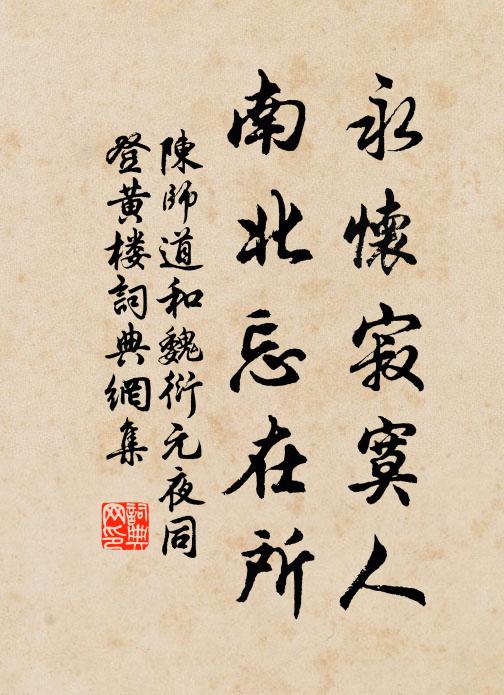 永懷寂寞人
南北忘在所
陳師道和魏衍元夜同
登黃楼詞典網集
詞典网印